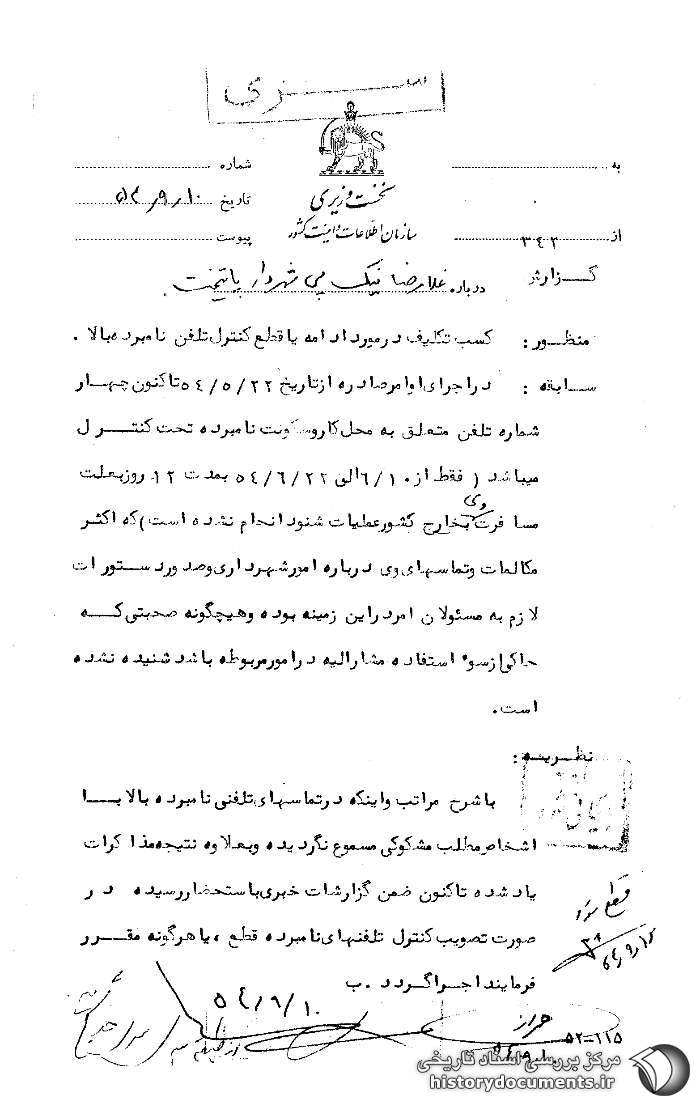 سری
به
شماره
تاریخ ۵۴/۹/۱۰
نخست وزیری
سازمان اطلاعات و امنیت کشور
از ۳۴۲
پیوست
گزارش
درباره غلامرضا نیک پی شهردار پایتخت
منظور : کسب تکلیف در مورد ادامه یا قطع کنترل تلفن نامبرده بالا .
سابقه : در اجرای اوامر صادره از تاریخ ۵۴/۵/۲۲ تاکنون چهار
شماره تلفن متعلق به محل کار و سکونت نامبرده تحت کنترل
میباشد ( فقط از ۶/۱۰ الی ۵۴/۶/۲۲ بمدت ۱۲ روز بعلت
مسافرت وی بخارج کشور عملیات شنود انجام نشده است) که اکثر
مکالمات و تماسهای وی درباره امور شهرداری و صدور دستورات
لازم به مسئولان امر در این زمینه بوده و هیچگونه صحبتی که
حاکی از سوء استفاده مشارالیه در امور مربوطه باشد شنیده نشده
است .
نظریه :
با شرح مراتب و اینکه در تماسهای تلفنی نامبرده بالا با
اشخاص مطلب مشکوکی مسموع نگردیده و بعلاوه نتیجه مذاکرات
یاد شده تاکنون ضمن گزارشات خبری باستحضار رسیده در
صورت تصویب کنترل تلفنهای نامبرده قطع ، یا هرگونه مقرر
فرمایند اجرا گردد . ب
قطع شود
۵۴/۹/۱۰
۵۲-۱۱۵
مرکز بررسی اسناد تاریخی
historydocuments.ir